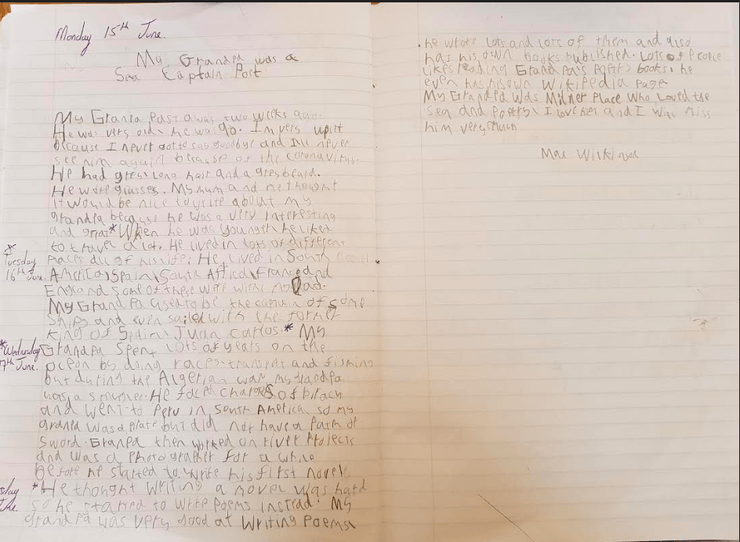 Monday 15th June.
My Grandpa was a
Sea Captain Poet
My Granpa Past away two weeks ago.
He was very old. he was 90. I'm very upset
because I never got to say goodbye and I'll never
see him again because of the coronavirus.
He had grey long hair and a grey beard.
He wore glasses. My mum and me thought
it would be nice to write about my
grandpa because he was a very interesting
and great * When he was younger he liked
to travel a lot. He lived in lots of different
* Tuesday 16th June.
Places all of his life. He lived in South
America, Spain, South Africa, France and
England some of these were with my Dad.
My Grandpa used to be the captain of some
ships and even sailed with the former
King of Spain: Juan Carlos. * My
* Wednesday 17th June.
Grandpa Spent lots of years on the
ocean by doing races, transport and fishing
but during the Algerian war my Grandpa
was a smuggler. He faced charges of
and went to Peru in South America so my
granpa was a Pirate but did not have a
sword. Granpa then worked on river Projects
and was a Photographer for a while
before he started to write his first novel.
* He thought writing a novel was hard
so he started to write poems instead. My
grandpa was very good at writing Poems
. he wrote lots and lots of them and also
has his own books published. Lots of People
likes reading Grandpa's Poetry books, he
even has his own Wikipedia page.
My Grandpa was Milner Place who loved the
sea and Poetry. I love him and I will miss
him very much
Mae Wilkinson